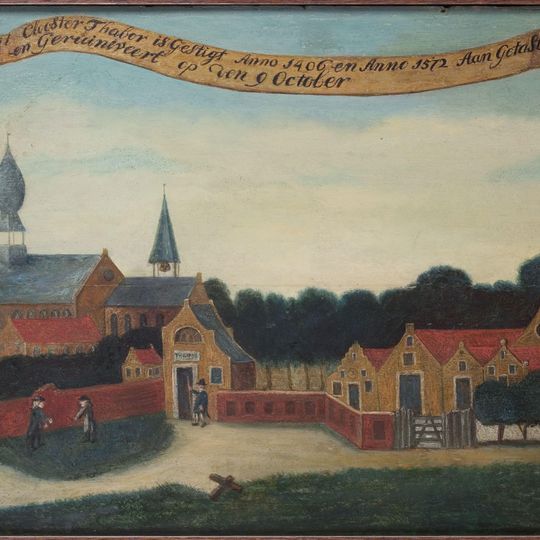 Closter Thabor is Gestigt Anno 1406 en Anno 1572 Aan Getast
en Geruintveert op den 9 October